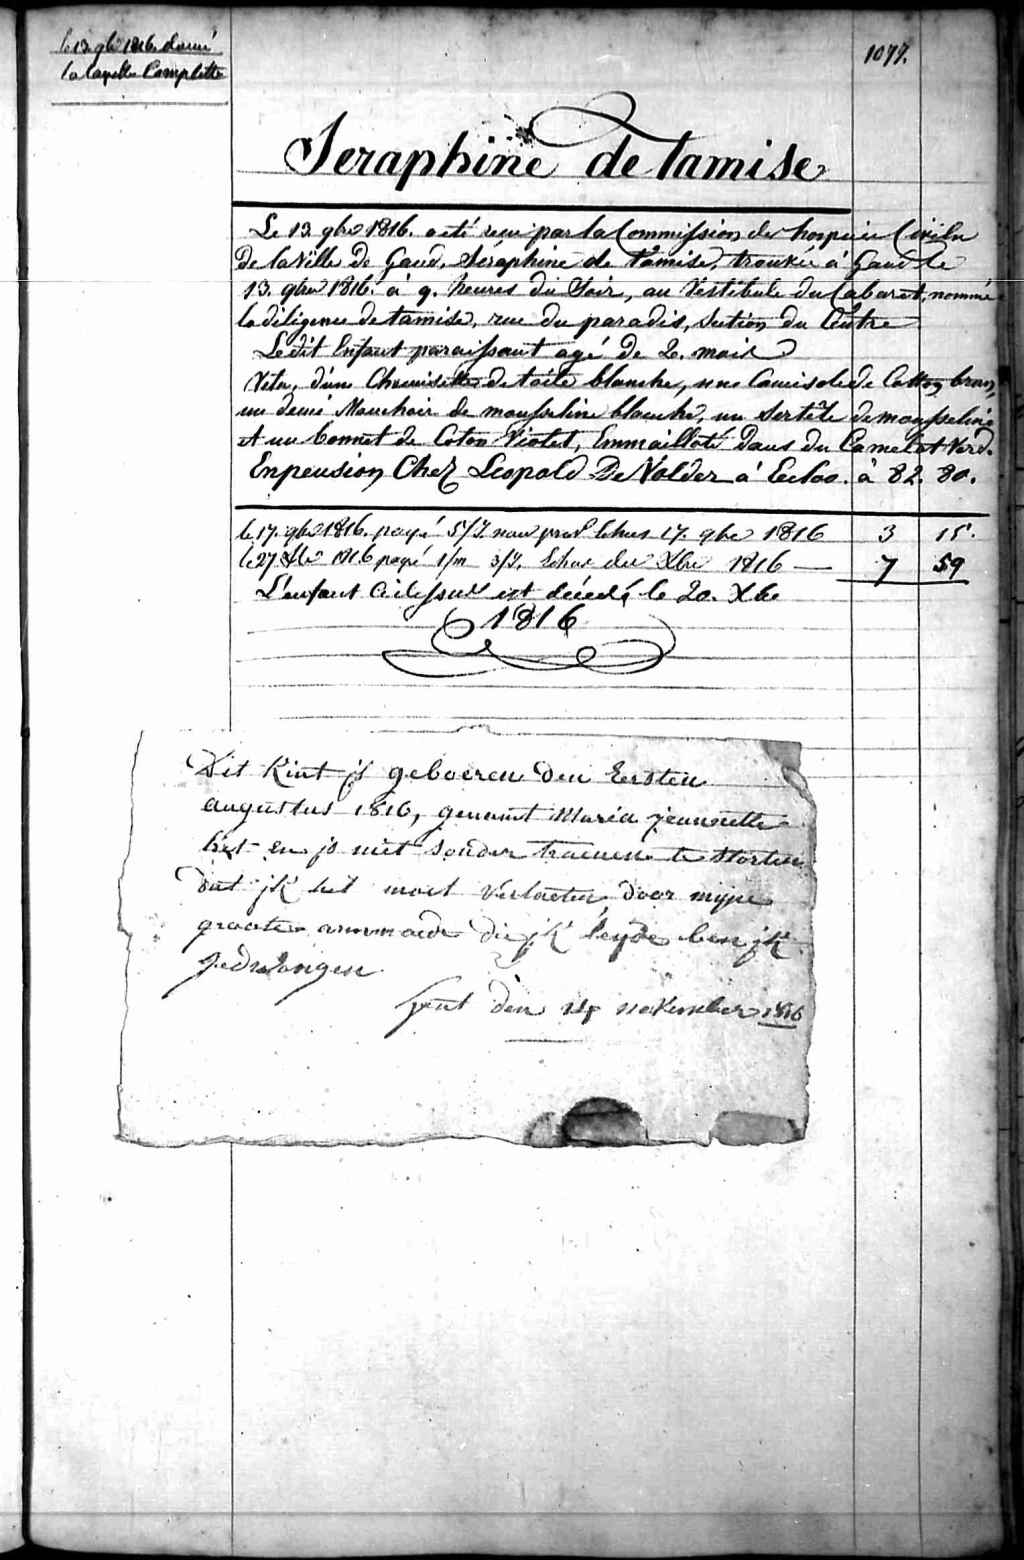 le 13. gbre 1816. donné
la layette Complette
1077.
Seraphine de tamise
Le 13. gbre 1816. a été reçu par la Commission des hospices Civils
De la Ville De Gand, Séraphine de tamise, trouvée à Gand le
13. gbre 1816. à 9. heures du Soir, au Vestibule du Cabaret, nommé
la diligence de tamise, rue du paradis, Section du Centre
Ledit Enfant paraissant agé de 2. mois
Vetu, d'une Chemisette de toile blanche, une Camisole de Cotton brun,
un demi Mouchoir de mousseline blanche, un Sertête de mousseline
et un bonnet de Coton Violet, Emmailloté Dans du Camelot Verd.
Enpension Chez Leopold De Volder à Eecloo. à 82. 80.
le 17. gbre 1816. payé 5/J. nour Echus 17. gbre 1816 3 15.
le 27 Xbre 1816 payé 1/m 3/J. Echus du Xbre 1816 — 7 59
L'enfant Cidessus est décedé le 20. Xbre
1816
Dit Kint js geboeren den Eersten
augustus 1816, genamt Maria jeannette
het en js niet sonder traenen te storten
dat jk het moet verlaeten, door mijne
groote armmoede die jk leyde ben jk
gedrongen
Gent den 14 november 1816